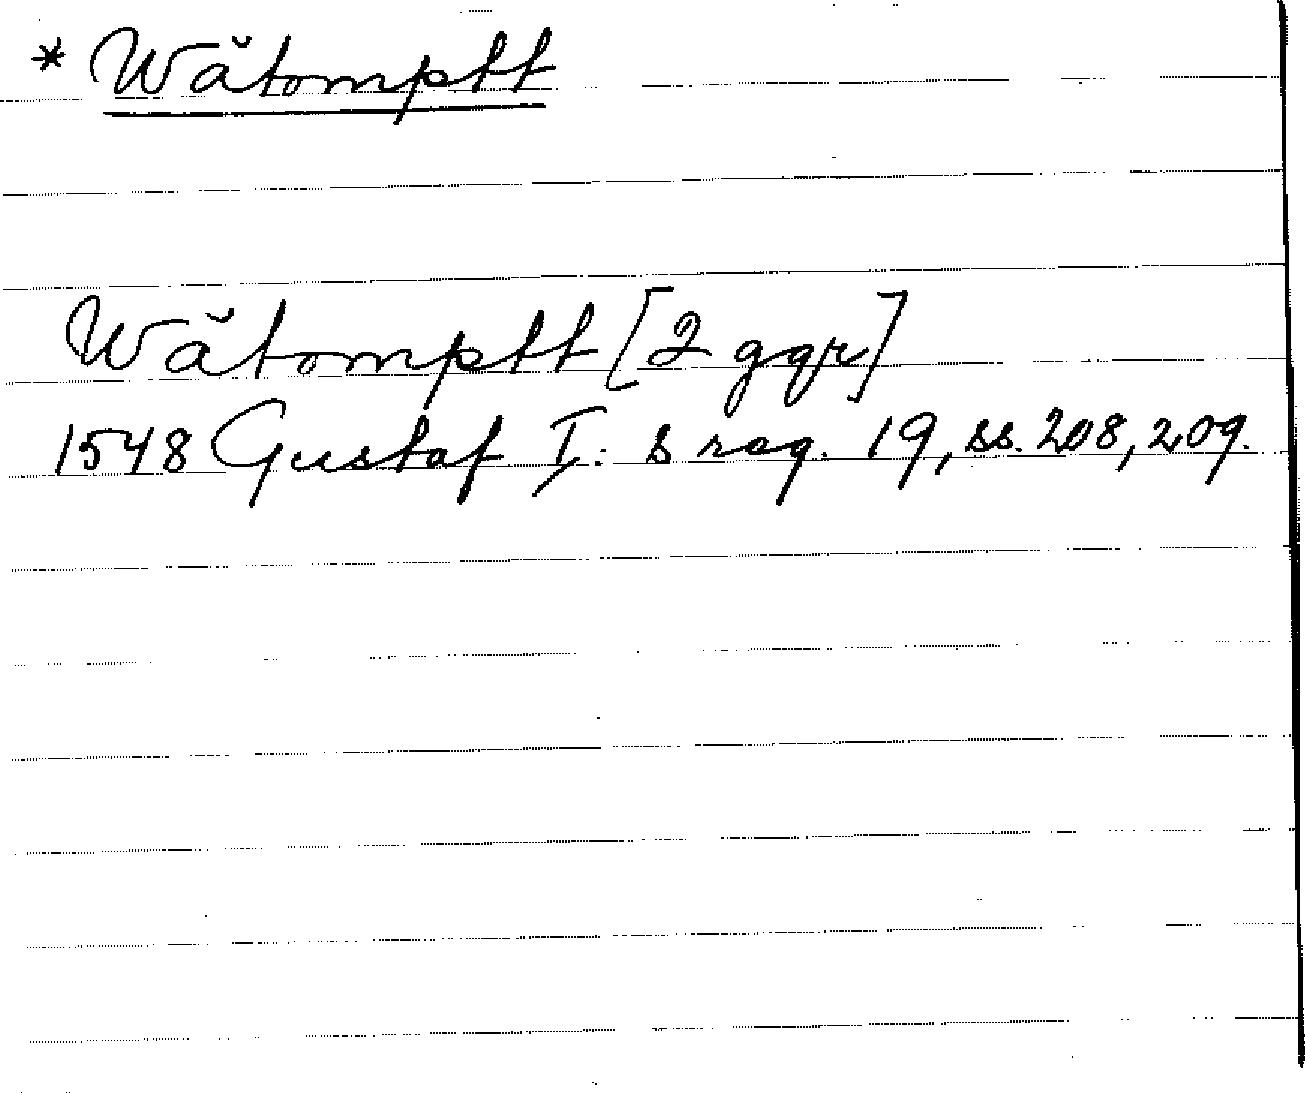 * Wătomptt
Wătomptt [2 ggr]
1548 Gustaf I: s reg. 19, ss. 208, 209.